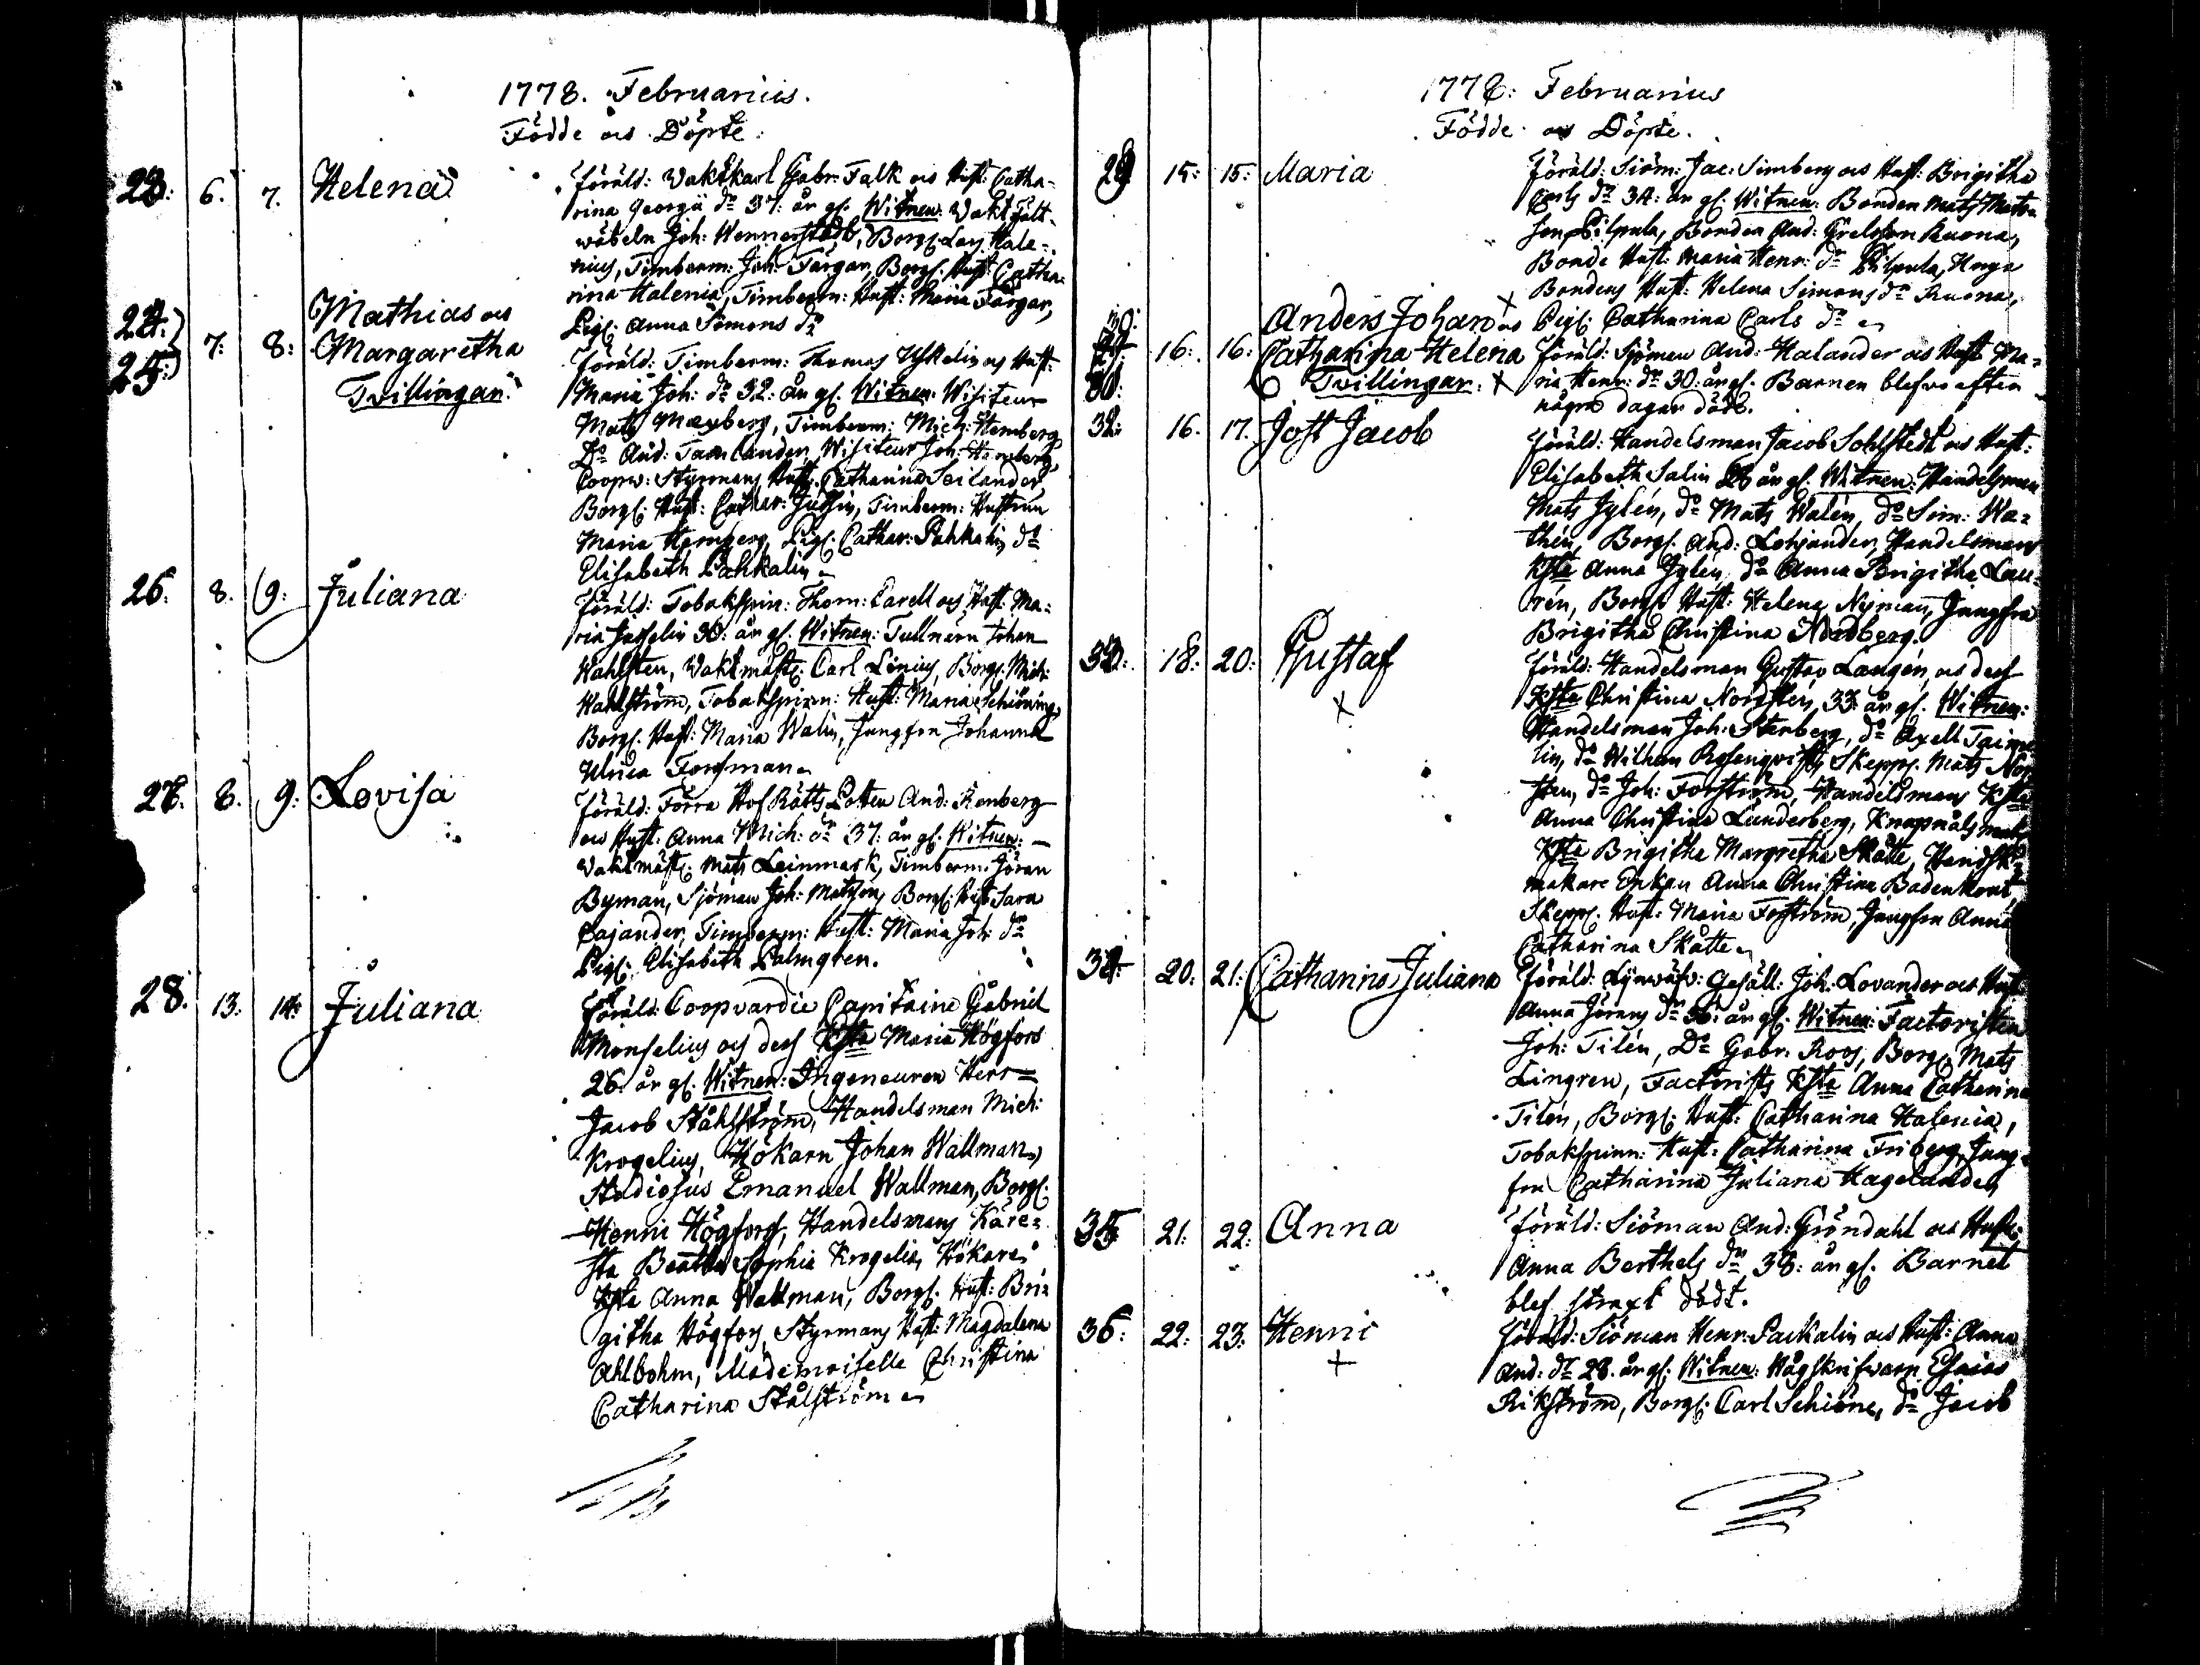 1778. Februarius.
Födde och Döpte.
23. 6. 7. Helena
Föräld: Vaktkarl Gabr: Falk och Hust: Catha-
rina Georgii dr 37: år gl: Witnen: Vakt Fält-
wäbeln Joh: Wennerstedt, Borg: Lars Hale-
nius, Timberm: Joh: Färgar, Borg: Hust: Catha-
rina Halenia, Timberm: Hust: Maria Färgar,
Pig: Anna Simons dr
24. 25. 7: 8: Mathias och
Margaretha
Tvillingar.
Föräld: Timberm: Thomas och Hust:
Maria Joh: dr 32: år gl: Witnen: Visiteur
Mats Maxberg, Timberm: Mich: Hemberg
Do And: Tavelander, Visiteur Joh: Hemberg,
Coopv: Styrmans Hust: Catharina Seilander
Borg: Hust: Cathar: Timberm: Hustrun
Maria Hernberg, Pig: Cathar: Pahkalin do
Elisabeth Pahkalin
26. 8. 9: Juliana
Föräld: Tobakspin: Thom: Carell och Hust: Ma-
ria 30: år gl: Witnen: Tullnären Johan
Wahlsten, Vaktmäst: Carl Linius, Borg: Mich:
Wahlström, Tobakspinn: Hust: Maria Schiöning,
Borg: Hust: Maria Walin, Jungfru Johanna
Ulrica Forsman
27. 8. 9: Lovisa
Föräld: Förra Hof Rätts And: Renberg
och Hust: Anna Mich: dr 37: år gl: Witnen:
Vaktmäst: Mats Leinmark, Timberm: Jöran
Byman, Sjöman Joh: Matsson, Borg: Hust: Sara
Cajander, Timberm: Hust: Maria Joh: dr
Pig: Elisabeth Palmgren.
28. 13. 14: Juliana
Föräld: Coopvardie Capitaine Gabriel
Monselius och dess Kjsta Maria Högfors
26: år gl: Witnen: Ingeneuren Herr
Jacob Ståhlström, Handelsman Mich:
Krogelius, Hökarn Johan Wallman,
Studiosus Emanuel Wallman, Borg:
Henric Högfors, Handelsmans Käre-
sta Beatha Sophia Krogelia, Hökare
Kjsta Anna Wallman, Borg: Hust: Bri-
githa Högfors, Styrmans Hust: Magdalena
Ahlbohm, Mademoiselle Christina
Catharina Stålström
1778: Februarius
Födde och Döpte.
29 15: 15: Maria
Föräld: Siöm: Jac: Simberg och Hust: Brigitha
Carls dr 34: år gl: Witnen: Bonden Mats Mats-
son Pilpula, Bonden And: Grelsson Ruona,
Bonde Hust: Maria Henr: dr Pilpula, Unga
Bondens Hust: Helena Simons dr Ruona,
Pig: Catharina Carls dr
30: 16: 16: Anders Johan och
Catharina Helena
Tvillingar.
Föräld: Sjöman And: Halander och Hust: Ma-
ria Henr: dr 30: år gl: Barnen blefvo efter
några dagar döde.
32: 16. 17. Jost Jacob
Föräld: Handelsman Jacob Sohlstedt och Hust:
Elisabeth Salin 26 år gl: Witnen: Handelsman
Mats Jylén, do Mats Walén, do Sim: Wa-
thén, Borg: And: Lohjander, Handelsmans
Kjsta Anna Jylén, do Anna Brigitha Lau-
rén, Borg: Hust: Helena Nyman, Jungfru
Brigitha Christina Nordberg.
33: 18: 20: Gustaf
Föräld: Handelsman Gustav Langén, och dess
Kjsta Christina Nordsten, 33 år gl: Witnen:
Handelsman Joh: Stenberg, do Axell
lin, do Wilhem Rosenqvist, Skepps. Mats Nor
sten, do Joh: Forström, Handelsmans Kjsta
Anna Christina Lunderberg, Knapnålsmak:
Kjsta Brigitha Margretha Skatte, Handsk-
makare Enkan Anna Christina Badenkont,
Skepps: Hust: Maria Forström, Jungfru Anna
Catharina Skatte
34: 20: 21: Catharina Juliana
Föräld: Linwäfv: Gesäll: Joh: Lovander och Hust:
Anna Jörans dr 36: år gl: Witnen: Factoristen
Joh: Tilén, Do Gabr: Roos, Borg: Mats
Lingren, Factorists Kjsta Anna Catharina
Tilén, Borg: Hust: Catharina Halenia,
Tobakspinn: Hust: Catharina Friberg, Jung-
fru Catharina Juliana Hagelander
35 21: 22: Anna
Föräld: Siöman And: Gröndahl och Hust:
Anna Berthels dr 38: år gl: Barnet
blef straxt dödt.
36: 22: 23: Henric
Föräld: Siöman Henr: Paikalin och Hust: Anna
And: dr 28. år gl: Witnen: Vågskrifvarn Esaias
Rikström, Borg: Carl Schiöne, do Jacob